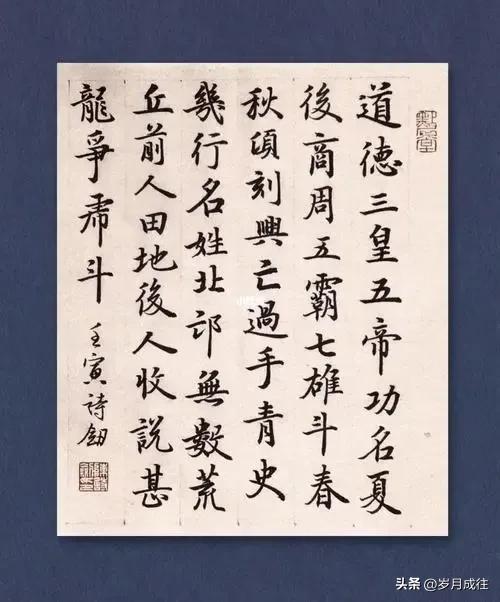 道德三皇五帝功名夏
後商周五霸七雄斗春
秋頃刻興亡過手青史
幾行名姓北邙無數荒
丘前人田地後人收說甚
龍爭虎斗
壬寅詩
小红书
头条 @岁月成往